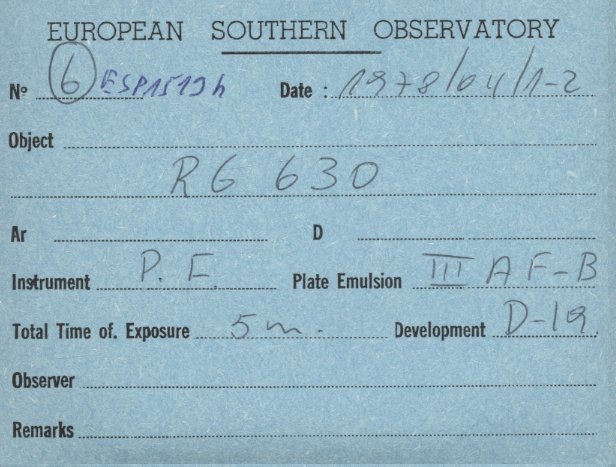 EUROPEAN SOUTHERN OBSERVATORY
Nº 6 ESP1513h Date : 1978/04/1-2
Object
RG 630
Ar D
Instrument P. F. Plate Emulsion III AF-B
Total Time of. Exposure 5 m. Development D-19
Observer
Remarks